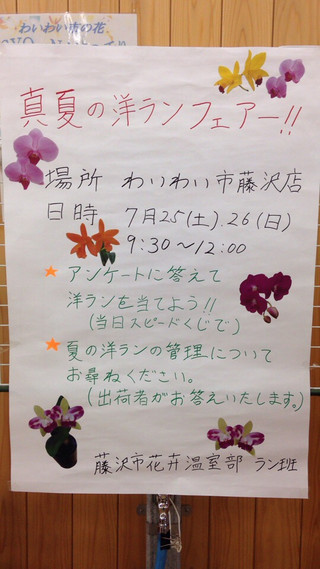 わいわい市の花
真夏の洋ランフェアー!!
場所 わいわい市藤沢店
日時 7月25(土).26(日)
9:30〜12:00
★アンケートに答えて
洋ランを当てよう!!
(当日スピードくじで)
★夏の洋ランの管理について
お尋ねください。
(出荷者がお答えいたします。)
藤沢市花卉温室部 ラン班